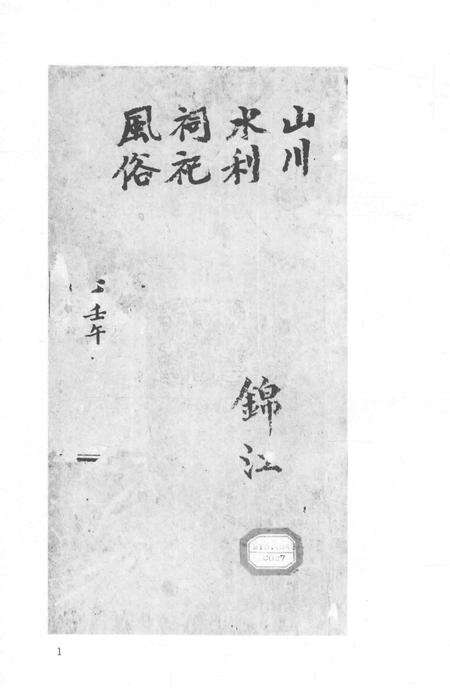 山川
水利
祠祀
風俗
錦江
壬午
1